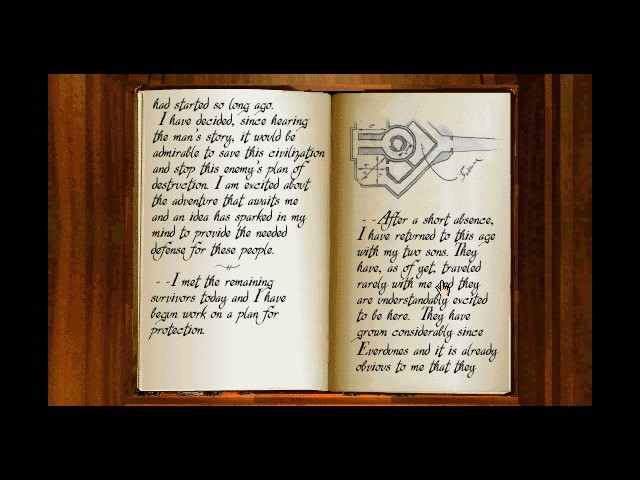 had started so long ago.
I have decided, since hearing
the man's story, it would be
admirable to save this civilization
and stop this enemy's plan of
destruction. I am excited about
the adventure that awaits me
and an idea has sparked in my
mind to provide the needed
defense for these people.
--I met the remaining
survivors today and I have
begun work on a plan for
protection.
--After a short absence,
I have returned to this age
with my two sons. They
have, as of yet, traveled
rarely with me and they
are understandably excited
to be here. They have
grown considerably since
Everdunes and it is already
obvious to me that they